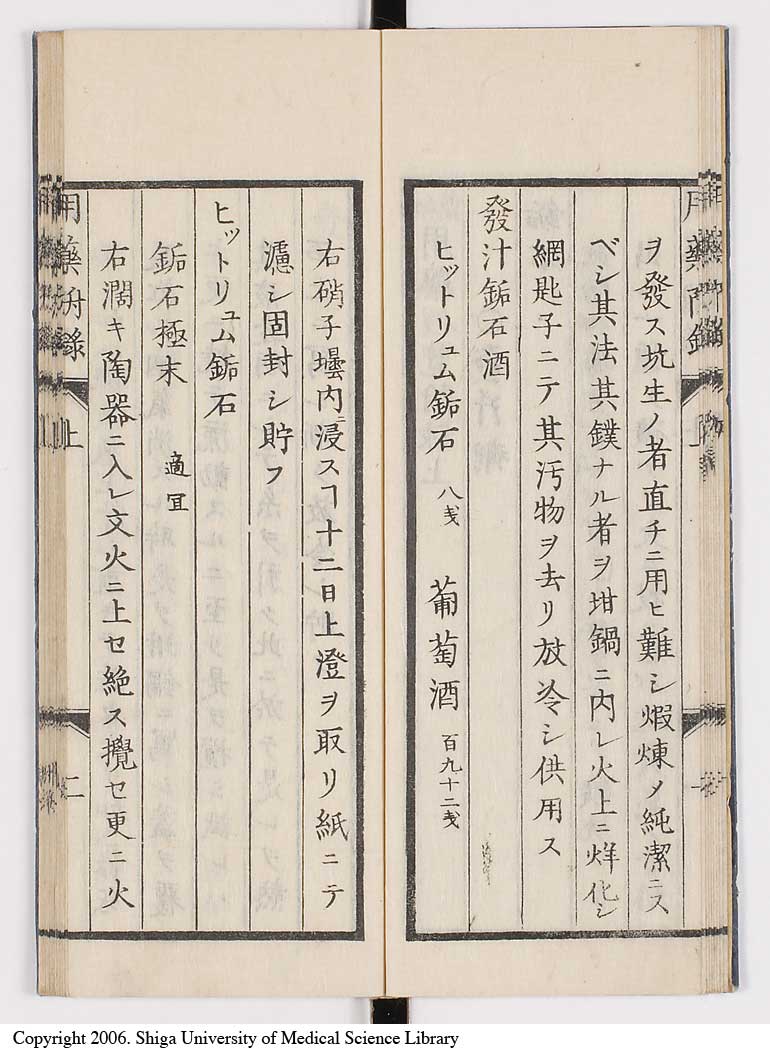 ヲ發ス坑生ノ者直チニ用ヒ難シ煆煉メ純潔ニス
ベシ其法其鏷ナル者ヲ坩鍋ニ内レ火上ニ烊化シ
網匙子ニテ其汚物ヲ去リ放冷シ供用ス
發汁鉐石酒
ヒットリュム鉐石 八戔 葡萄酒 百九十二戔
右硝子壜内ニ浸スヿ十二日上澄ヲ取リ紙ニテ
濾シ固封シ貯フ
ヒットリュム鉐石
鉐石極末 適冝
右濶キ陶器ニ入レ文火ニ上セ絶ス攪セ更ニ火
上
二
Copyright 2006. Shiga University of Medical Science Library